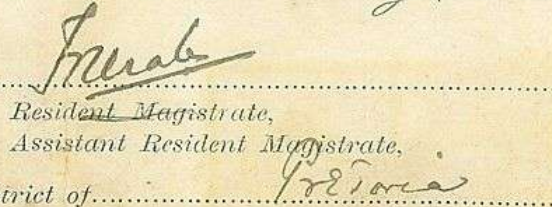 Resident Magistrate,
Assistant Resident Magistrate,
trict of Pretoria